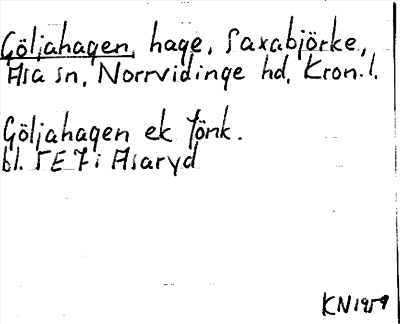 Göljahagen, hage, Saxabjörke,
Asa sn, Norrvidinge hd, Kron.l.
Göljahagen ek Jönk.
bl. 5E7i Asaryd
KN1959